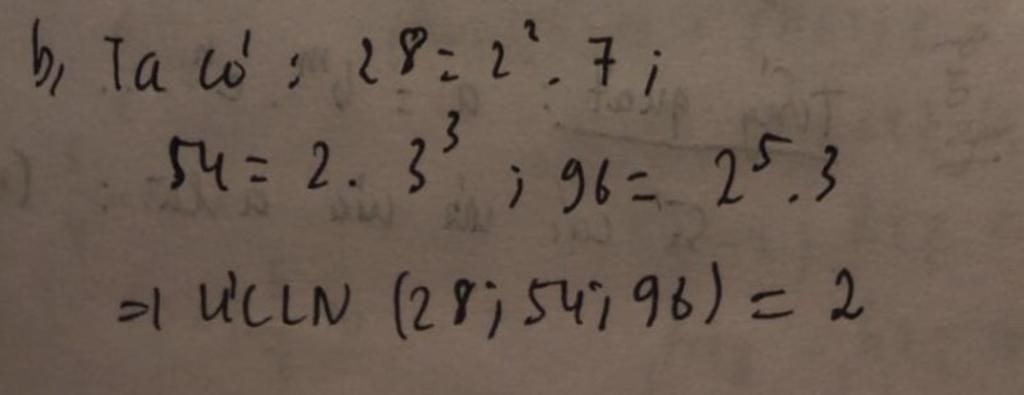 b, Ta có : 28 = 2² . 7 ;
54 = 2 . 3³ ; 96 = 2⁵ . 3
=> ƯCLN (28; 54; 96) = 2